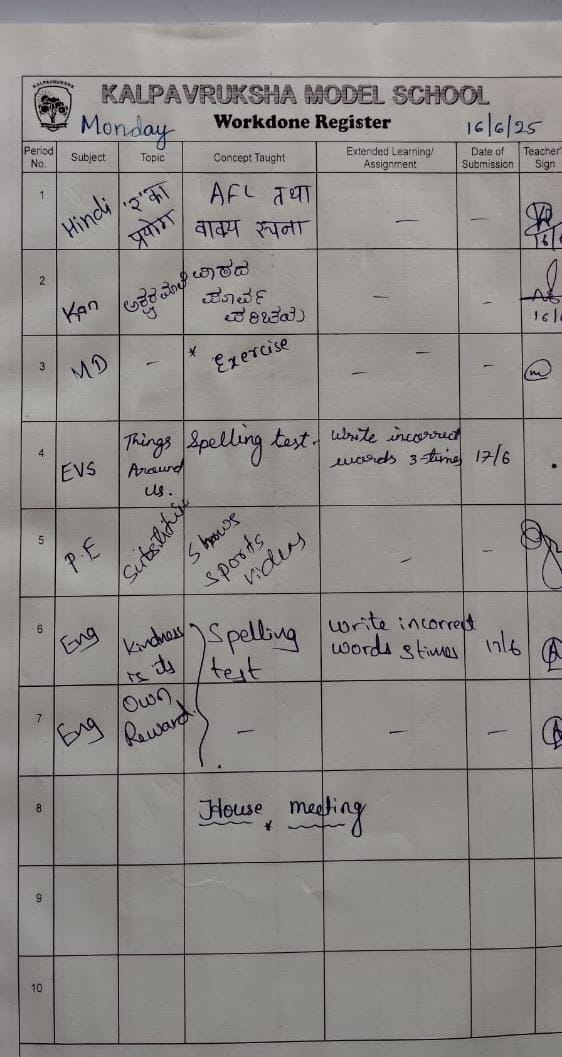 KALPAVRUKSHA
KALPAVRUKSHA MODEL SCHOOL
Monday Workdone Register 16/6/25
Period No. Subject Topic Concept Taught Extended Learning/ Assignment Date of Submission Teacher Sign
1 Hindi 'र' का प्रयोग AFL तथा वाक्य रचना – –
2 Kan ಪಾಠದ ಪೂರ್ವ ಪರಿಚಯ – –
3 MD – * Exercise – – –
4 EVS Things Around us. Spelling test. Write incorrect words 3-times 17/6
5 P.E Substitution Shows sports videos – –
6 Eng Kindness is its Spelling test Write incorrect words 3 times 17/6
7 Eng Own Reward. – – –
8 House meeting
9
10